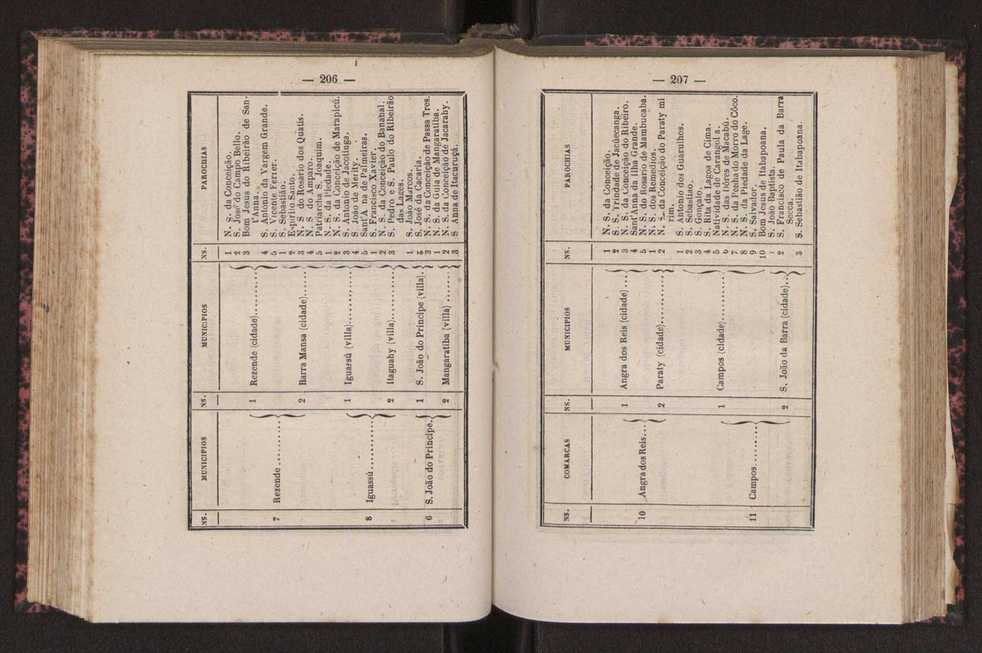 — 206 —
NS. MUNICIPIOS NS. MUNICIPIOS NS. PAROCHIAS
7 Rezende 1 Rezende (cidade) 1 N. S. da Conceição.
2 S. José do Campo Bello.
3 Bom Jesus do Ribeirão de San-
t'Anna.
4 S. Antonio da Vargem Grande.
5 S. Vicente Ferrer.
2 Barra Mansa (cidade) 1 S. Sebastião.
2 Espirito Santo.
3 N. S do Rosario dos Quatis.
4 N. S do Amparo.
5 Patriarcha S. Joaquim.
8 Iguassú 1 Iguarsú (villa) 1 N. S. da Piedade.
2 N. S. da Conceição de Marapicú.
3 S. Antonio de Jacotinga.
4 S. João de Merity.
5 Sant'A na de Palmeiras.
2 Itaguahy (villa) 1 S. Francisco Xavier.
2 N. S. da Conceição do Bananal.
3 S. Pedro e S. Paulo do Ribeirão
das Lages.
6 S. João do Principe. 1 S. João do Principe (villa). 1 S. João Marcos.
S. José da Cacaria.
3 N. S. da Conceição de Passa Tres.
2 Mangaratiba (villa) 1 N. S. da Guia de Mangaratiba.
2 N. S. da Conceição de Jacarahy.
3 S Anna de Itacuruçá.
— 207 —
NS. COMARCAS NS. MUNICIPIOS NS. PAROCHIAS
10 Angra dos Reis 1 Angra dos Reis (cidade) 1 N. S. da Conceição.
2 S. S. Trindade de Jacuecanga.
3 N. S. da Conceição do Ribeiro.
4 Sant'Anna da Ilha Grande.
5 N. S. do Rosario de Mambucaba.
2 Paraty (cidade) 1 N. S. dos Remedios.
2 N. S. da Conceição do Paraty mi
rim
11 Campos 1 Campos (cidade) 1 S. Antonio dos Guarulhos.
2 S. Sebastião.
3 S. Gonçalo.
4 S. Rita da Lagoa de Cima.
5 Natividade de Carangol a.
6 N. S. das Dôres de Macabú.
7 N. S. da Penha do Morro do Côco.
8 N. S. da Piedade da Lage.
9 S. Salvador.
10 Bom Jesus de Itabapoana.
2 S. João da Barra (cidade) 1 S. João Baptista.
2 S. Francisco de Paula da Barra
Secca.
3 S. Sebastião de Itabapoana.